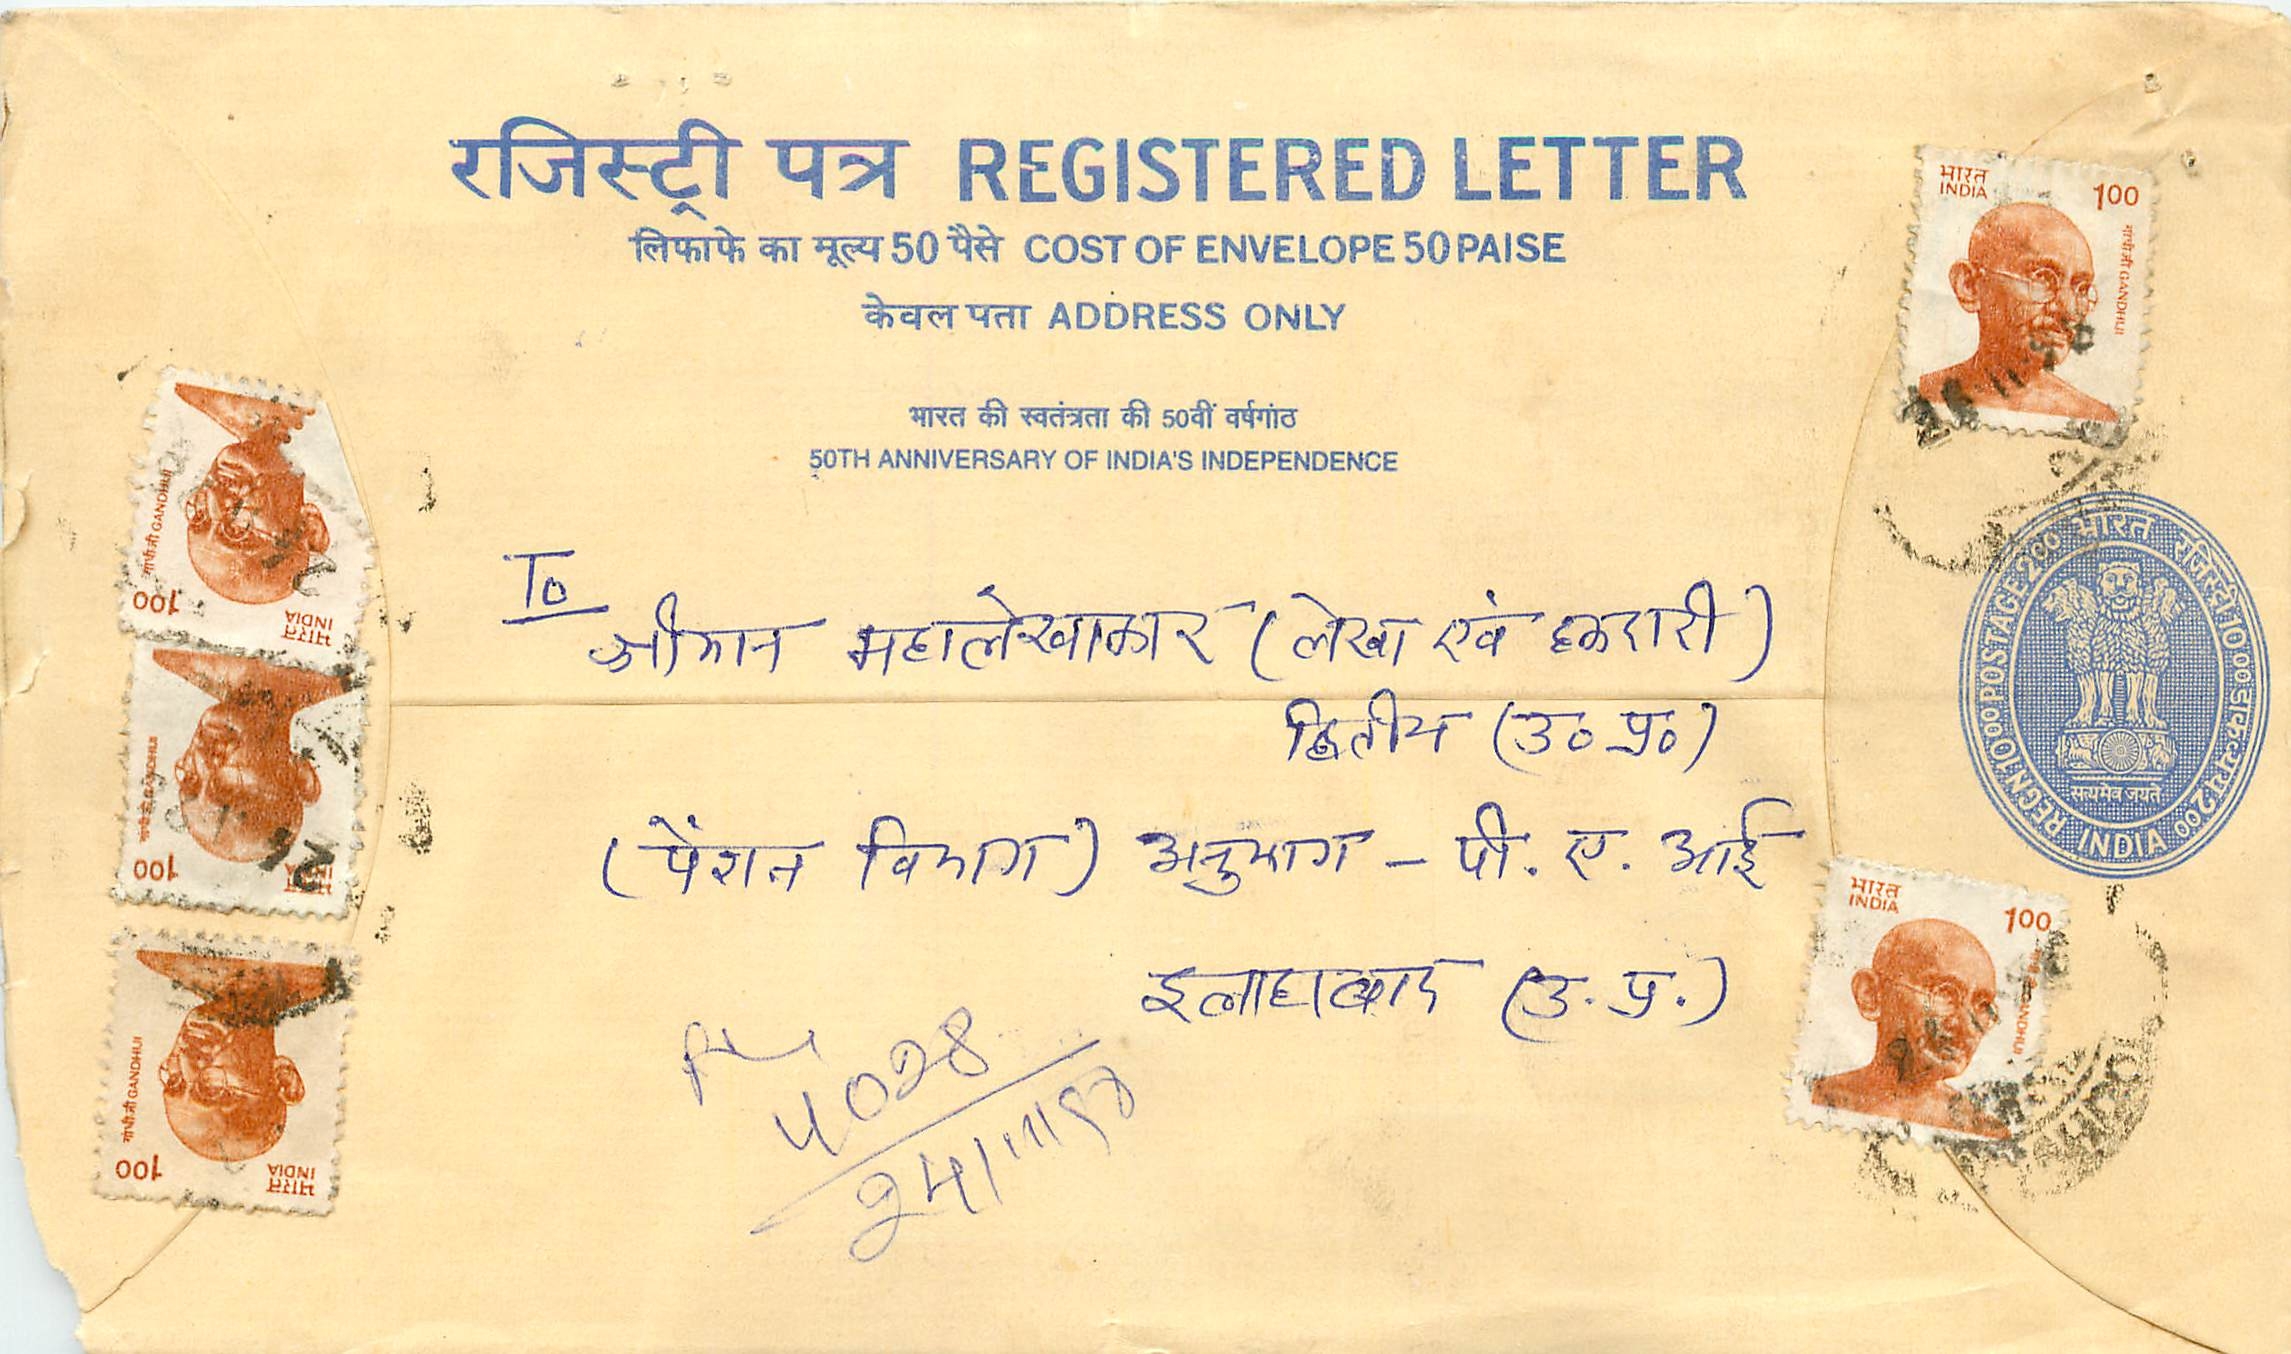 रजिस्ट्री पत्र REGISTERED LETTER
लिफाफे का मूल्य 50 पैसे COST OF ENVELOPE 50 PAISE
केवल पता ADDRESS ONLY
भारत की स्वतंत्रता की 50वीं वर्षगांठ
50TH ANNIVERSARY OF INDIA'S INDEPENDENCE
भारत
INDIA
100
गांधी जी GANDHIJI
To
श्रीमान महालेखाकार (लेखा एवं हकदारी)
द्वितीय (उ० प्र०)
(पेंशन विभाग) अनुभाग - पी. ए. आई
इलाहाबाद (उ. प्र.)
भारत रजिस्ट्री 10 00 डाक व्यय 2 00
REGN 10 00 POSTAGE 2 00
सत्यमेव जयते
INDIA
भारत
INDIA
100
GANDHIJI
भारत
INDIA
100
गांधी जी GANDHIJI
भारत
INDIA
100
गांधी जी GANDHIJI
भारत
INDIA
100
गांधी जी GANDHIJI